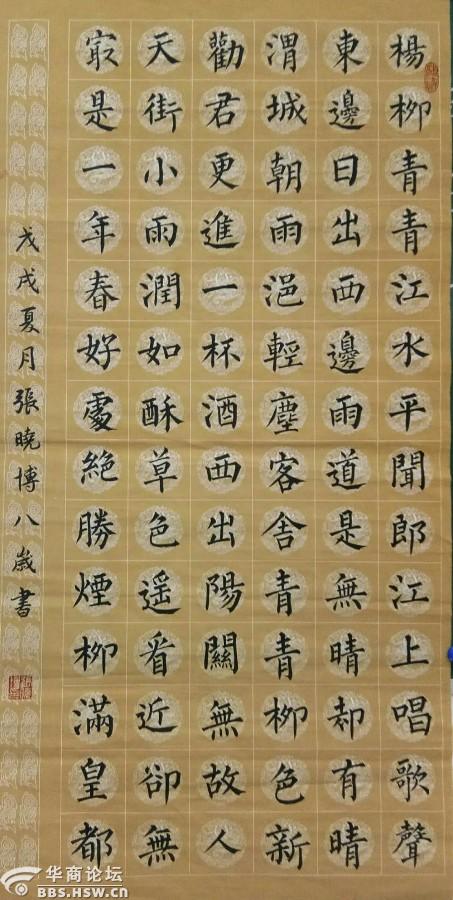 楊柳青青江水平聞郎江上唱歌聲
東邊日出西邊雨道是無晴却有晴
渭城朝雨浥輕塵客舍青青柳色新
勸君更進一杯酒西出陽關無故人
天街小雨潤如酥草色遥看近卻無
冣是一年春好處絶勝煙柳滿皇都
戊戌夏月張曉博八歲書
华商论坛
BBS.HSW.CN